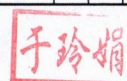 于玲娟